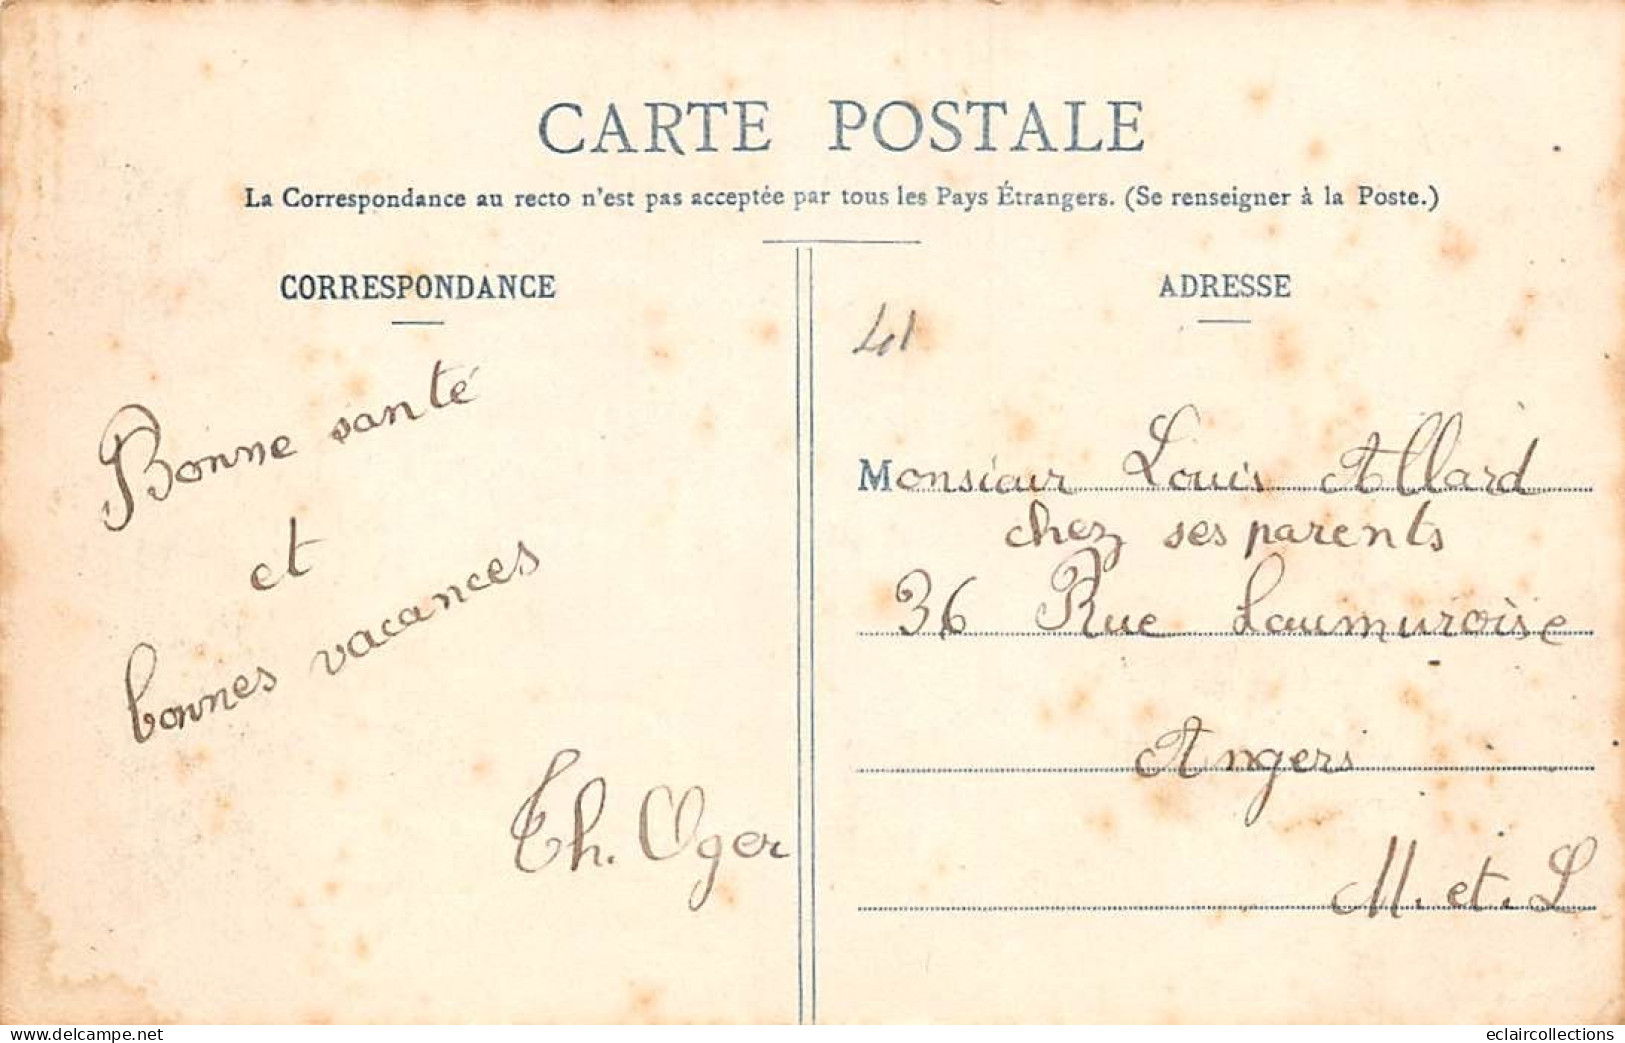 CARTE POSTALE
La Correspondance au recto n'est pas acceptée par tous les Pays Étrangers. (Se renseigner à la Poste.)
CORRESPONDANCE
Bonne santé
et
bonnes vacances
Th. Oger
ADRESSE
41
Monsieur Louis Allard
chez ses parents
36 Rue Saumuroise
Angers
M. et. L
www.delcampe.net
eclaircollections